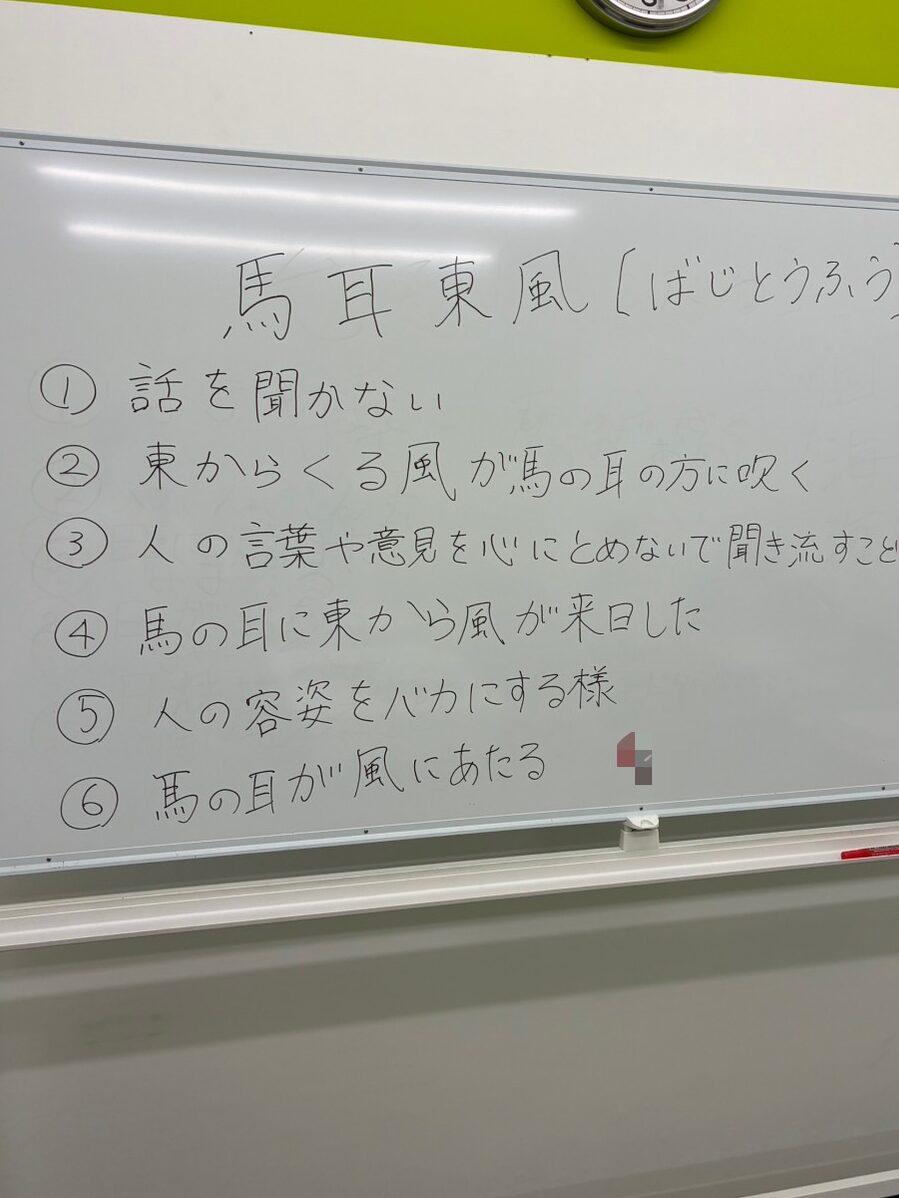 馬耳東風(ばじとうふう)
① 話を聞かない
② 東からくる風が馬の耳の方に吹く
③ 人の言葉や意見を心にとめないで聞き流すこと
④ 馬の耳に東から風が来日した
⑤ 人の容姿をバカにする様
⑥ 馬の耳が風にあたる